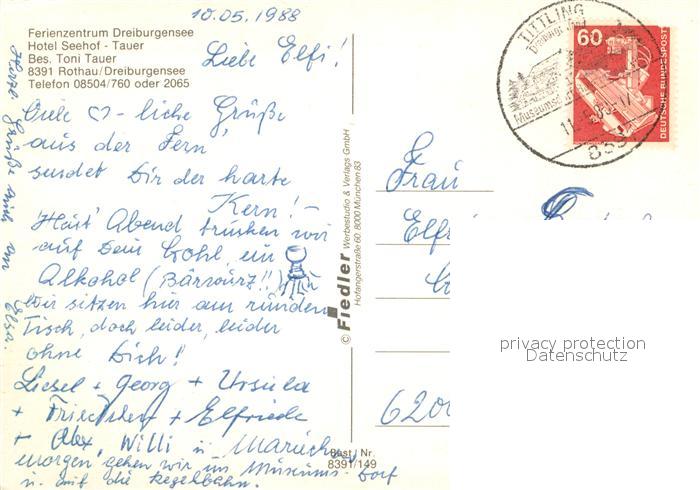 10.05.1988
Ferienzentrum Dreiburgensee
Hotel Seehof - Tauer
Bes. Toni Tauer
8391 Rothau/Dreiburgensee
Telefon 08504/760 oder 2065
Liebe Elfi!
Viele ♡-liche Grüße
aus der Fern,
sendet Dir der harte
Kern! -
Heut' Abend trinken wir
auf Dein Wohl, ein
Alkohol (Bärwurz!!)
Wir sitzen hier am runden
Tisch, doch leider, leider
ohne Dich!
Liesel + Georg + Ursula
+ Friedchen + Elfriede
+ Alex, Willi u. Maruschka
Morgen gehen wir ins Museums-Dorf
u. auf die Kegelbahn.
Herzl. Grüße auch von Elsa.
© Fiedler Werbestudio & Verlags GmbH
Hofangerstraße 60 8000 München 83
Best. Nr.
8391/149
TITTLING
Dreiburgenland
Museumsdorf
8391
60
DEUTSCHE BUNDESPOST
Frau
Elfi
620
privacy protection
Datenschutz